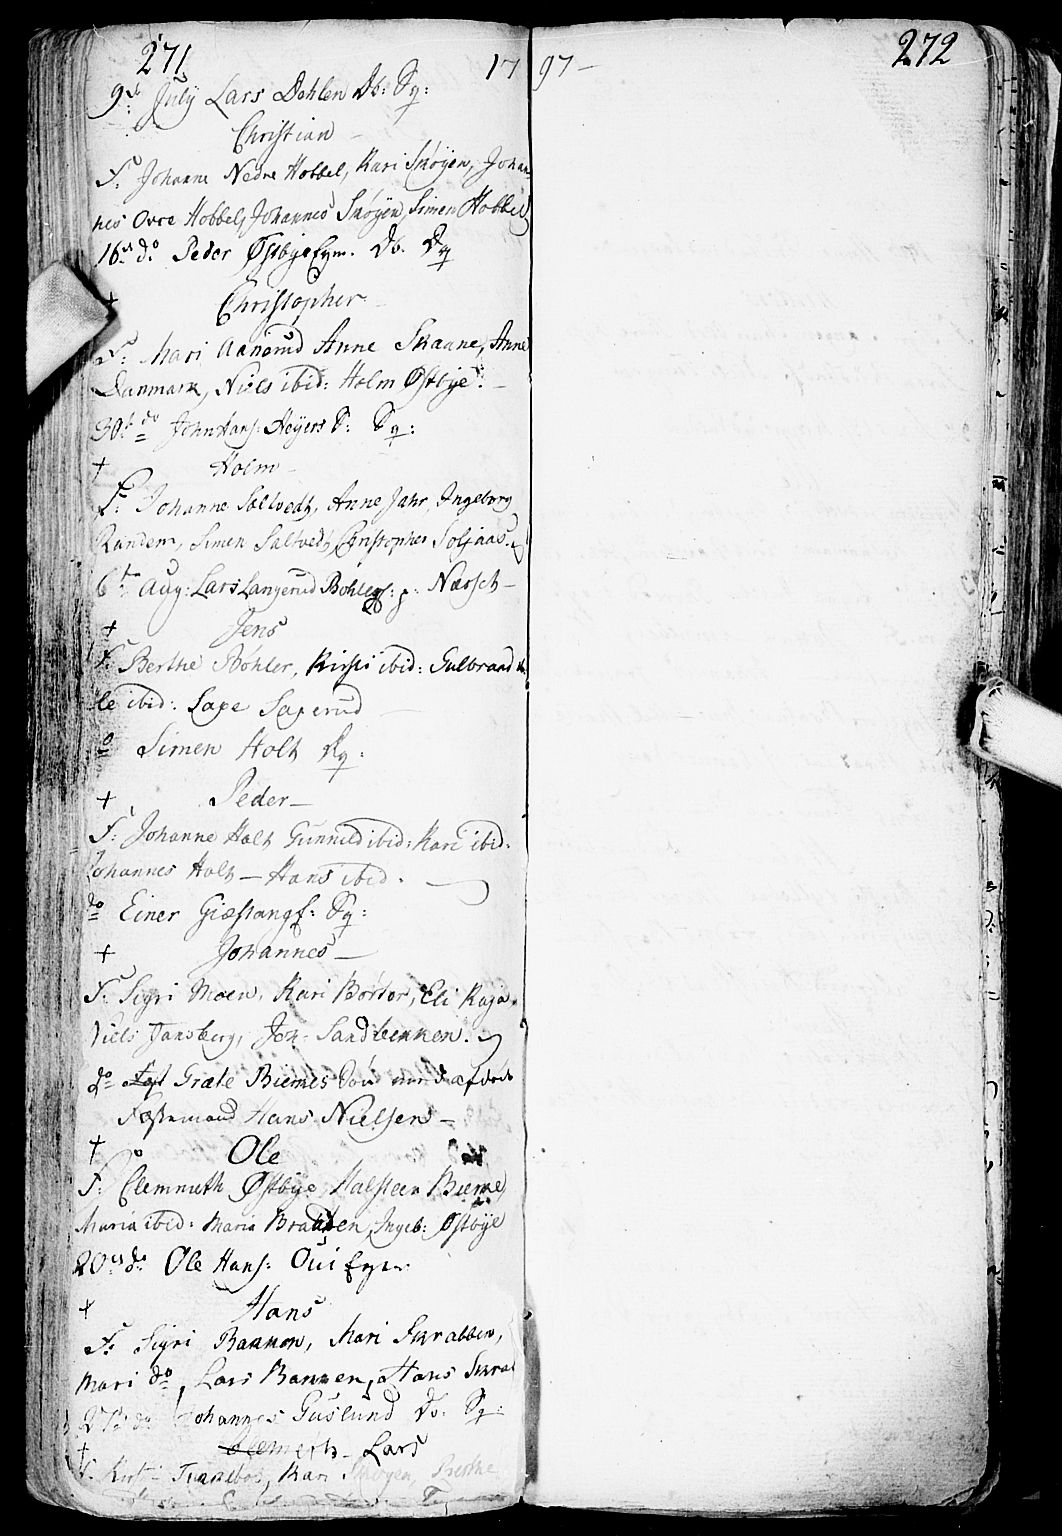 271
17 97 –
272
9de July Lars Dahlen Db: Sq:
Christian –
F: Johanne Nedre Hobbel, Kari Skøyen, Johan-
nes Ovre Hobbel, Johannes Skøyen, Simen Hobbel
16de do Peder Østbye Eyer. Db. Dq
+ Christopher –
F: Mari Aanerud Anne Skaane, Anne
Danmark, Niels ibid: Holm Østbye. –
30te do John Hans: Heyers S: Sq:
+ Holm –
F: Johanne Saltvedt, Anne Jahr, Ingeborg
Randem, Simen Saltvedt, Christopher Soljaas.
6te Aug: Lars Langerud Bøhler p: Næsset –
+ Jens
F: Berthe Bøhler, Kirsti ibid: Gulbrand
le ibid: Lage Sagerud –
do Simen Holt Dq:
+ Peder –
F: Johanne Holt Gunnild ibid: Kari ibid.
Johannes Holt – Hans ibid.
do Einer Giæstang f: Sq:
+ Johannes –
F: Sigri Moen, Kari Børtor, Eli Kaja.
Niels Tansberg, Joh: Sandbekken.
do Græte Biernes Søn med afdøde
Fæstemand Hans Nielsen –
+ Ole
F: Clemmeth Østbye Halsteen Bierne
Maria ibid: Maria Braaten, Ingeb: Østbye
20de do Ole Hans: Oui Eyer
+ Hans
F: Sigri Bakken, Mari Skrabben,
Mari do, Lars Bakken, Hans Skra
27de do Johannes Guslund Db: Sq:
+ Lars
F. Kirsti Tunneboe, Kari Skøyen, Berthe